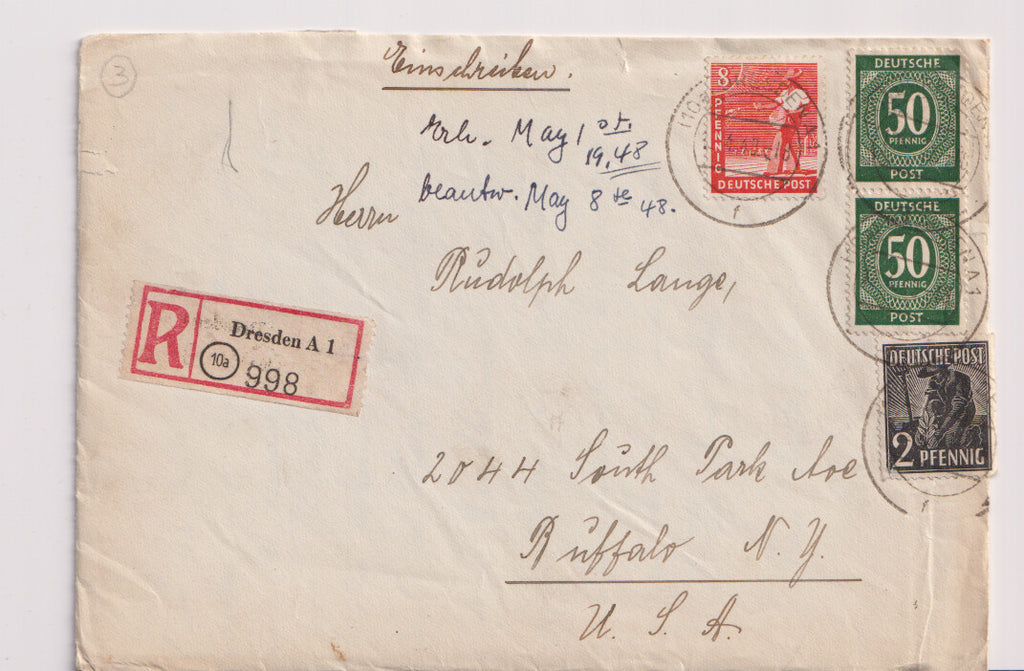 3
Einschreiben.
Erh. May 1 st
19,48
beantw. May 8 te 48.
Herrn
Rudolph Lange,
2044 South Park Ave
Buffalo N. Y.
U. S. A.
R Dresden A 1
10a 998
8
PFENNIG
DEUTSCHE POST
DEUTSCHE
50
PFENNIG
POST
DEUTSCHE
50
PFENNIG
POST
DEUTSCHE POST
2 PFENNIG
N A 1
f
f